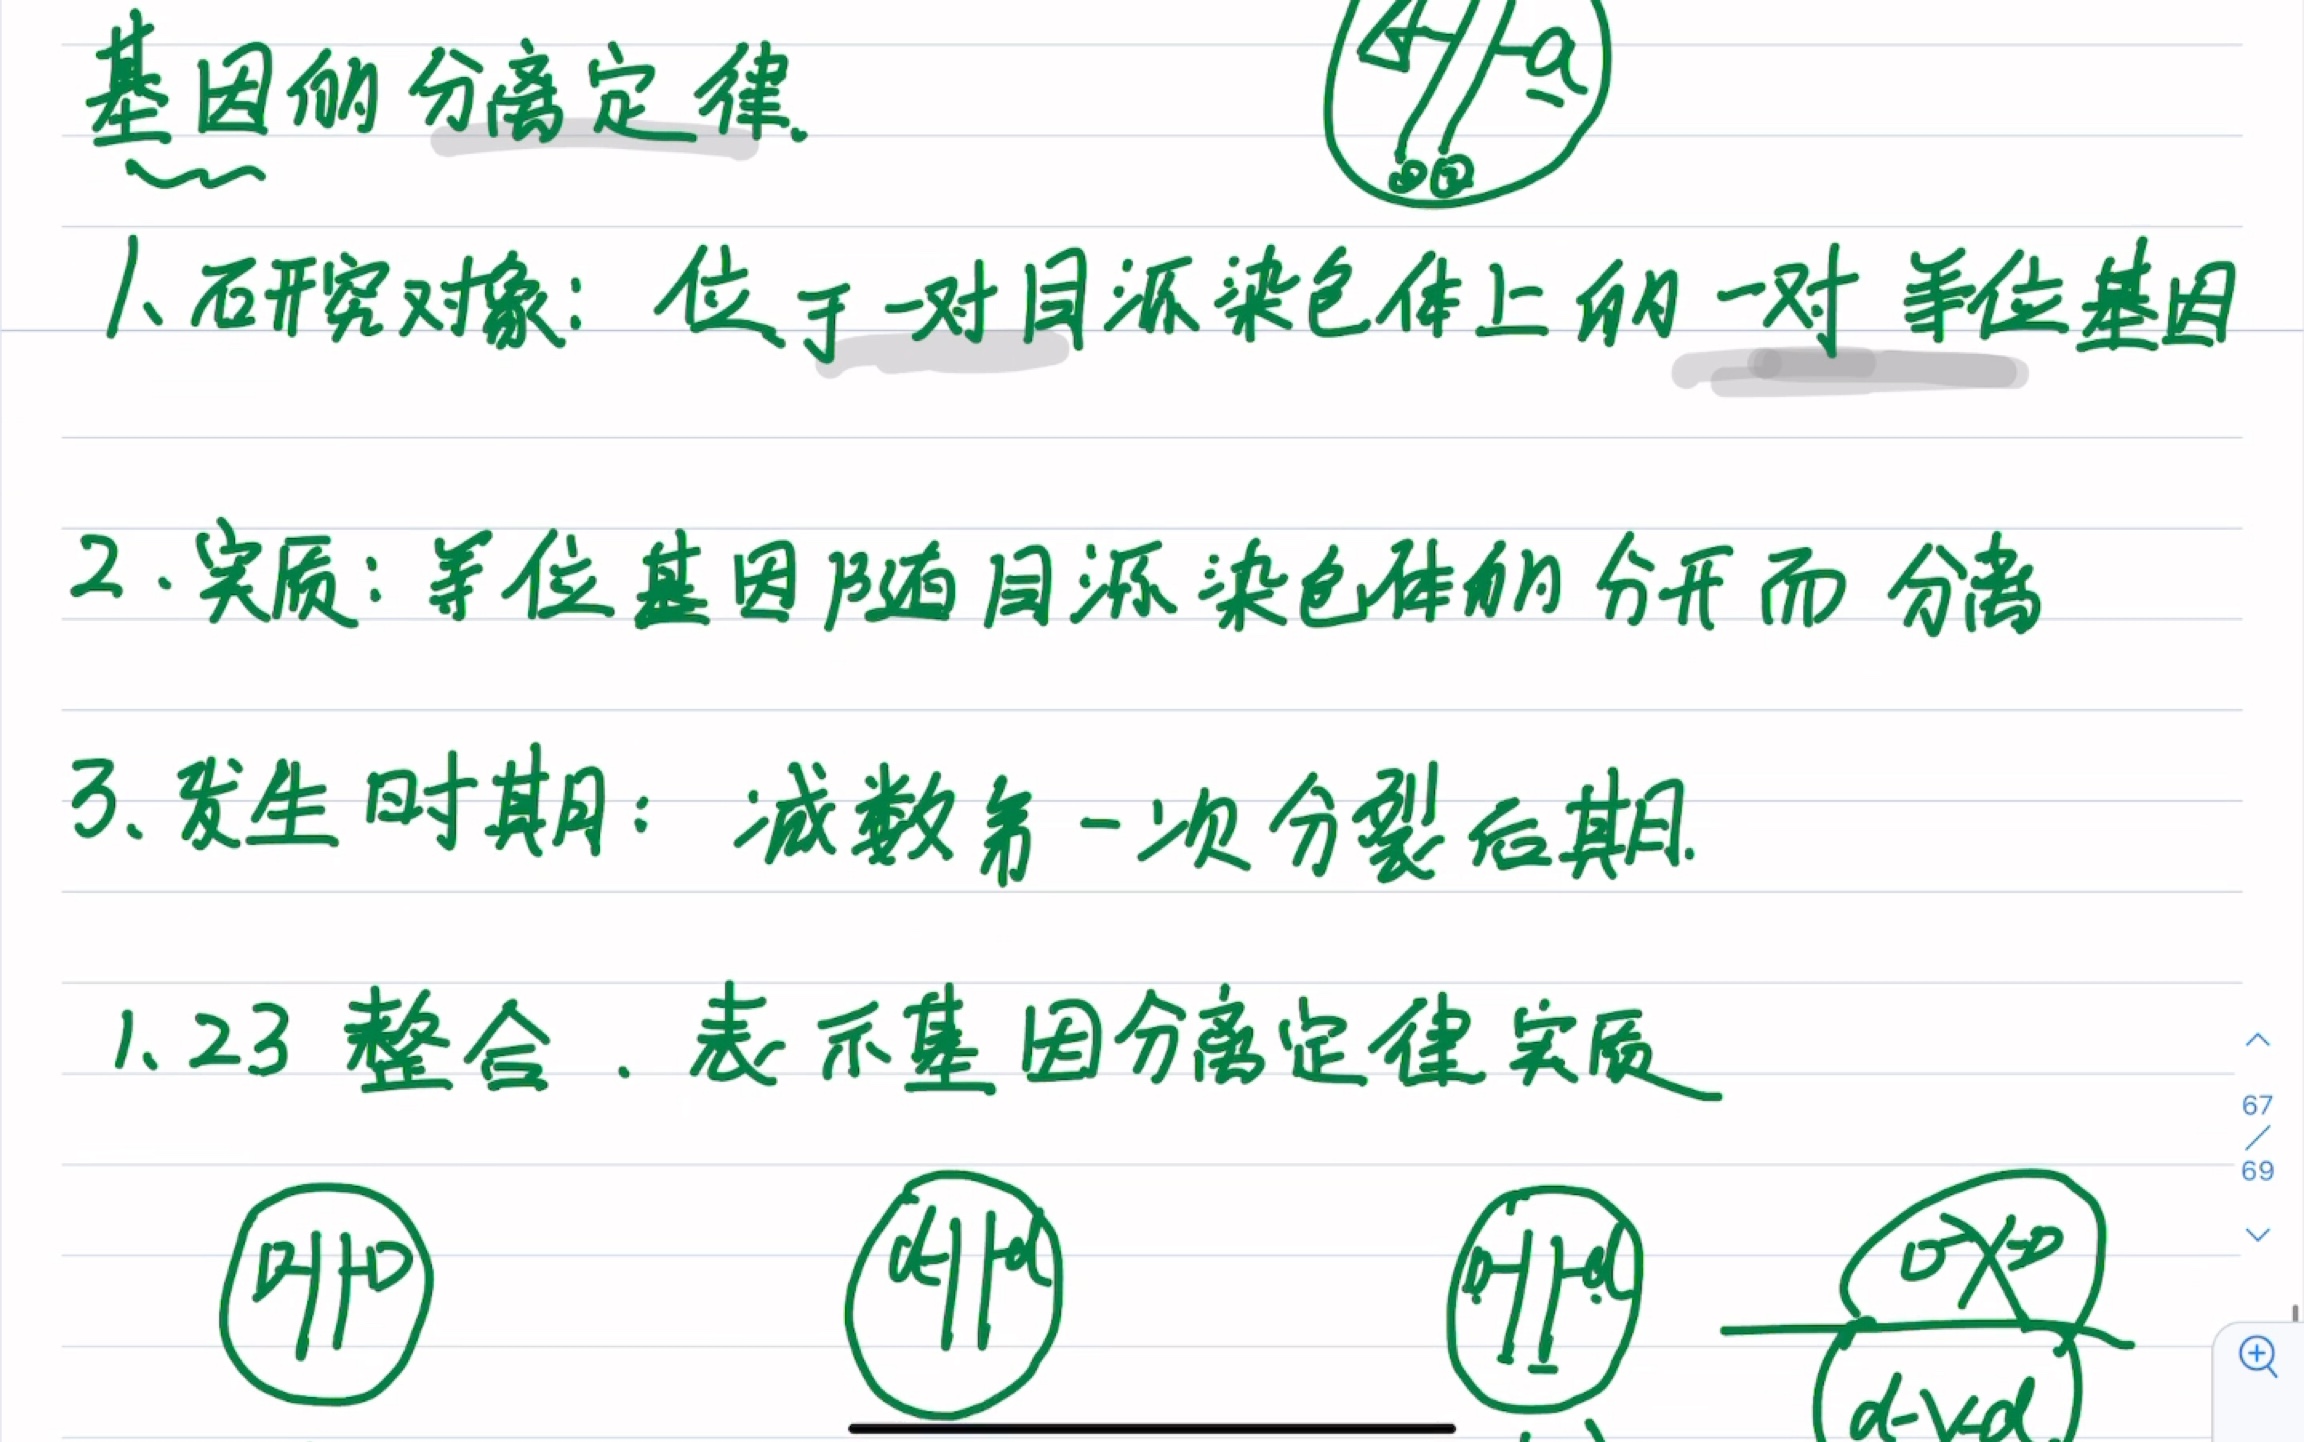 A a
基因的分离定律.
1、研究对象: 位于一对同源染色体上的一对等位基因
2.实质:等位基因随同源染色体的分开而分离
3、发生时期: 减数第一次分裂后期.
1、23 整合.表示基因分离定律实质
67
/
69
D D
d d
D d
D D
d d